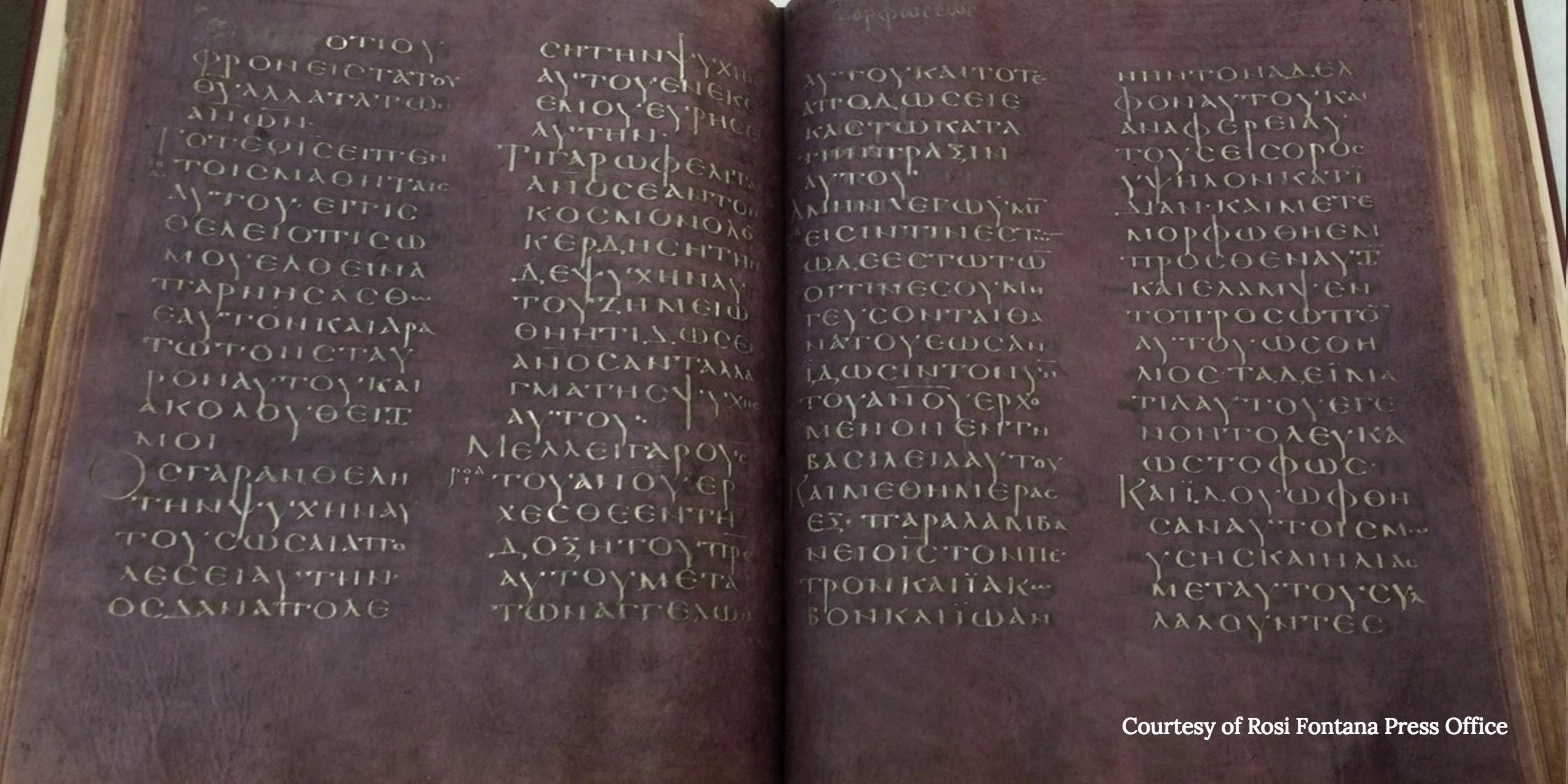 μορφωσεως
ΟΤΙΟΥ
ΦΡΟΝΕΙϹΤΑΤΟΥ
ΘΥΑΛΛΑΤΑΤΩΝ
ΑΝΩΝ·
ΤΟΤΕΟΙϹΕΙΠΕΝ
ΤΟΙϹΜΑΘΗΤΑΙϹ
ΑΥΤΟΥ·ΕΙΤΙϹ
ΘΕΛΕΙΟΠΙϹΩ
ΜΟΥΕΛΘΕΙΝΑ
ΠΑΡΝΗϹΑϹΘΩ
ΕΑΥΤΟΝΚΑΙΑΡΑ
ΤΩΤΟΝϹΤΑΥ
ΡΟΝΑΥΤΟΥΚΑΙ
ΑΚΟΛΟΥΘΕΙΤΩ
ΜΟΙ
ΟϹΓΑΡΑΝΘΕΛΗ
ΤΗΝΨΥΧΗΝΑΥ
ΤΟΥϹΩϹΑΙΑΠΟ
ΛΕϹΕΙΑΥΤΗΝ·
ΟϹΔΑΝΑΠΟΛΕ
ϹΗΤΗΝΨΥΧΗΝ
ΑΥΤΟΥΕΝΕΚΕ
ΕΜΟΥΕΥΡΗϹΕΙ
ΑΥΤΗΝ·
ΤΙΓΑΡΩΦΕΛΕΙΤΑΙ
ΑΝΟϹΕΑΝΤΟΝ
ΚΟϹΜΟΝΟΛΟ
ΚΕΡΔΗϹΗΤΗΝ
ΔΕΨΥΧΗΝΑΥ
ΤΟΥΖΗΜΕΙΩ
ΘΗΗΤΙΔΩϹΕΙ
ΑΝΟϹΑΝΤΑΛΛΑ
ΓΜΑΤΗϹΨΥΧΗϹ
ΑΥΤΟΥ·
ΜΕΛΛΕΙΓΑΡΟΥϹ
ΤΟΥΑΝΟΥΕΡ
ΧΕϹΘΕΕΝΤΗ
ΔΟΞΗΤΟΥΠΡϹ
ΑΥΤΟΥΜΕΤΑ
ΤΩΝΑΓΓΕΛΩΝ
ΑΥΤΟΥΚΑΙΤΟΤΕ
ΑΠΟΔΩϹΕΙΕ
ΚΑϹΤΩΚΑΤΑ
ΤΗΝΠΡΑΞΙΝ
ΑΥΤΟΥ·
ΑΜΗΝΛΕΓΩΥΜΙ
ΕΙϹΙΝΤΙΝΕϹΤΩ
ΩΔΕΕϹΤΩΤΩ
ΟΙΤΙΝΕϹΟΥΜΗ
ΓΕΥϹΟΝΤΑΙΘΑ
ΝΑΤΟΥΕΩϹΑΝ
ΙΔΩϹΙΝΤΟΝΥΝ
ΤΟΥΑΝΟΥΕΡΧΟ
ΜΕΝΟΝΕΝΤΗ
ΒΑϹΙΛΕΙΑΑΥΤΟΥ
ΚΑΙΜΕΘΗΜΕΡΑϹ
ΕΞ·ΠΑΡΑΛΑΜΒΑ
ΝΕΙΟΙϹΤΟΝΠΕ
ΤΡΟΝΚΑΙΪΑΚΩ
ΒΟΝΚΑΙΪΩΑΝ
ΝΗΝΤΟΝΑΔΕΛ
ΦΟΝΑΥΤΟΥΚΑΙ
ΑΝΑΦΕΡΕΙΑΥ
ΤΟΥϹΕΙϹΟΡΟϹ
ΥΨΗΛΟΝΚΑΤΙ
ΔΙΑΝ·ΚΑΙΜΕΤΕ
ΜΟΡΦΩΘΗΕΜ
ΠΡΟϹΘΕΝΑΥΤ
ΚΑΙΕΛΑΜΨΕΝ
ΤΟΠΡΟϹΩΠΟ
ΑΥΤΟΥΩϹΟΗ
ΛΙΟϹΤΑΔΕΪΜΑ
ΤΙΑΑΥΤΟΥΕΓΕ
ΝΟΝΤΟΛΕΥΚΑ
ΩϹΤΟΦΩϹ·
ΚΑΙΪΔΟΥΩΦΘΗ
ϹΑΝΑΥΤΟΙϹΜΩ
ΥϹΗϹΚΑΙΗΛΙΑϹ
ΜΕΤΑΥΤΟΥϹΥΛ
ΛΑΛΟΥΝΤΕϹ
Courtesy of Rosi Fontana Press Office